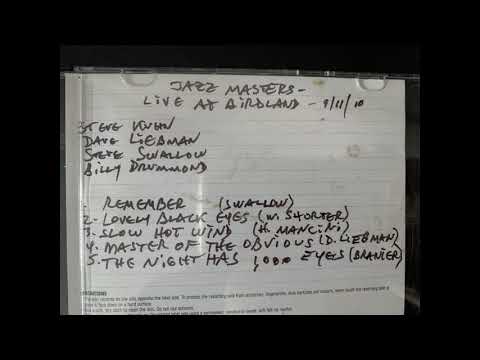 JAZZ MASTERS -
LIVE AT BIRDLAND - 9/11/10
STEVE KUHN
DAVE LIEBMAN
STEVE SWALLOW
BILLY DRUMMOND
1. REMEMBER (SWALLOW)
2. LOVELY BLACK EYES (W. SHORTER)
3. SLOW HOT WIND (H. MANCINI)
4. MASTER OF THE OBVIOUS (D. LIEBMAN)
5. THE NIGHT HAS 1,000 EYES (BRANIER)